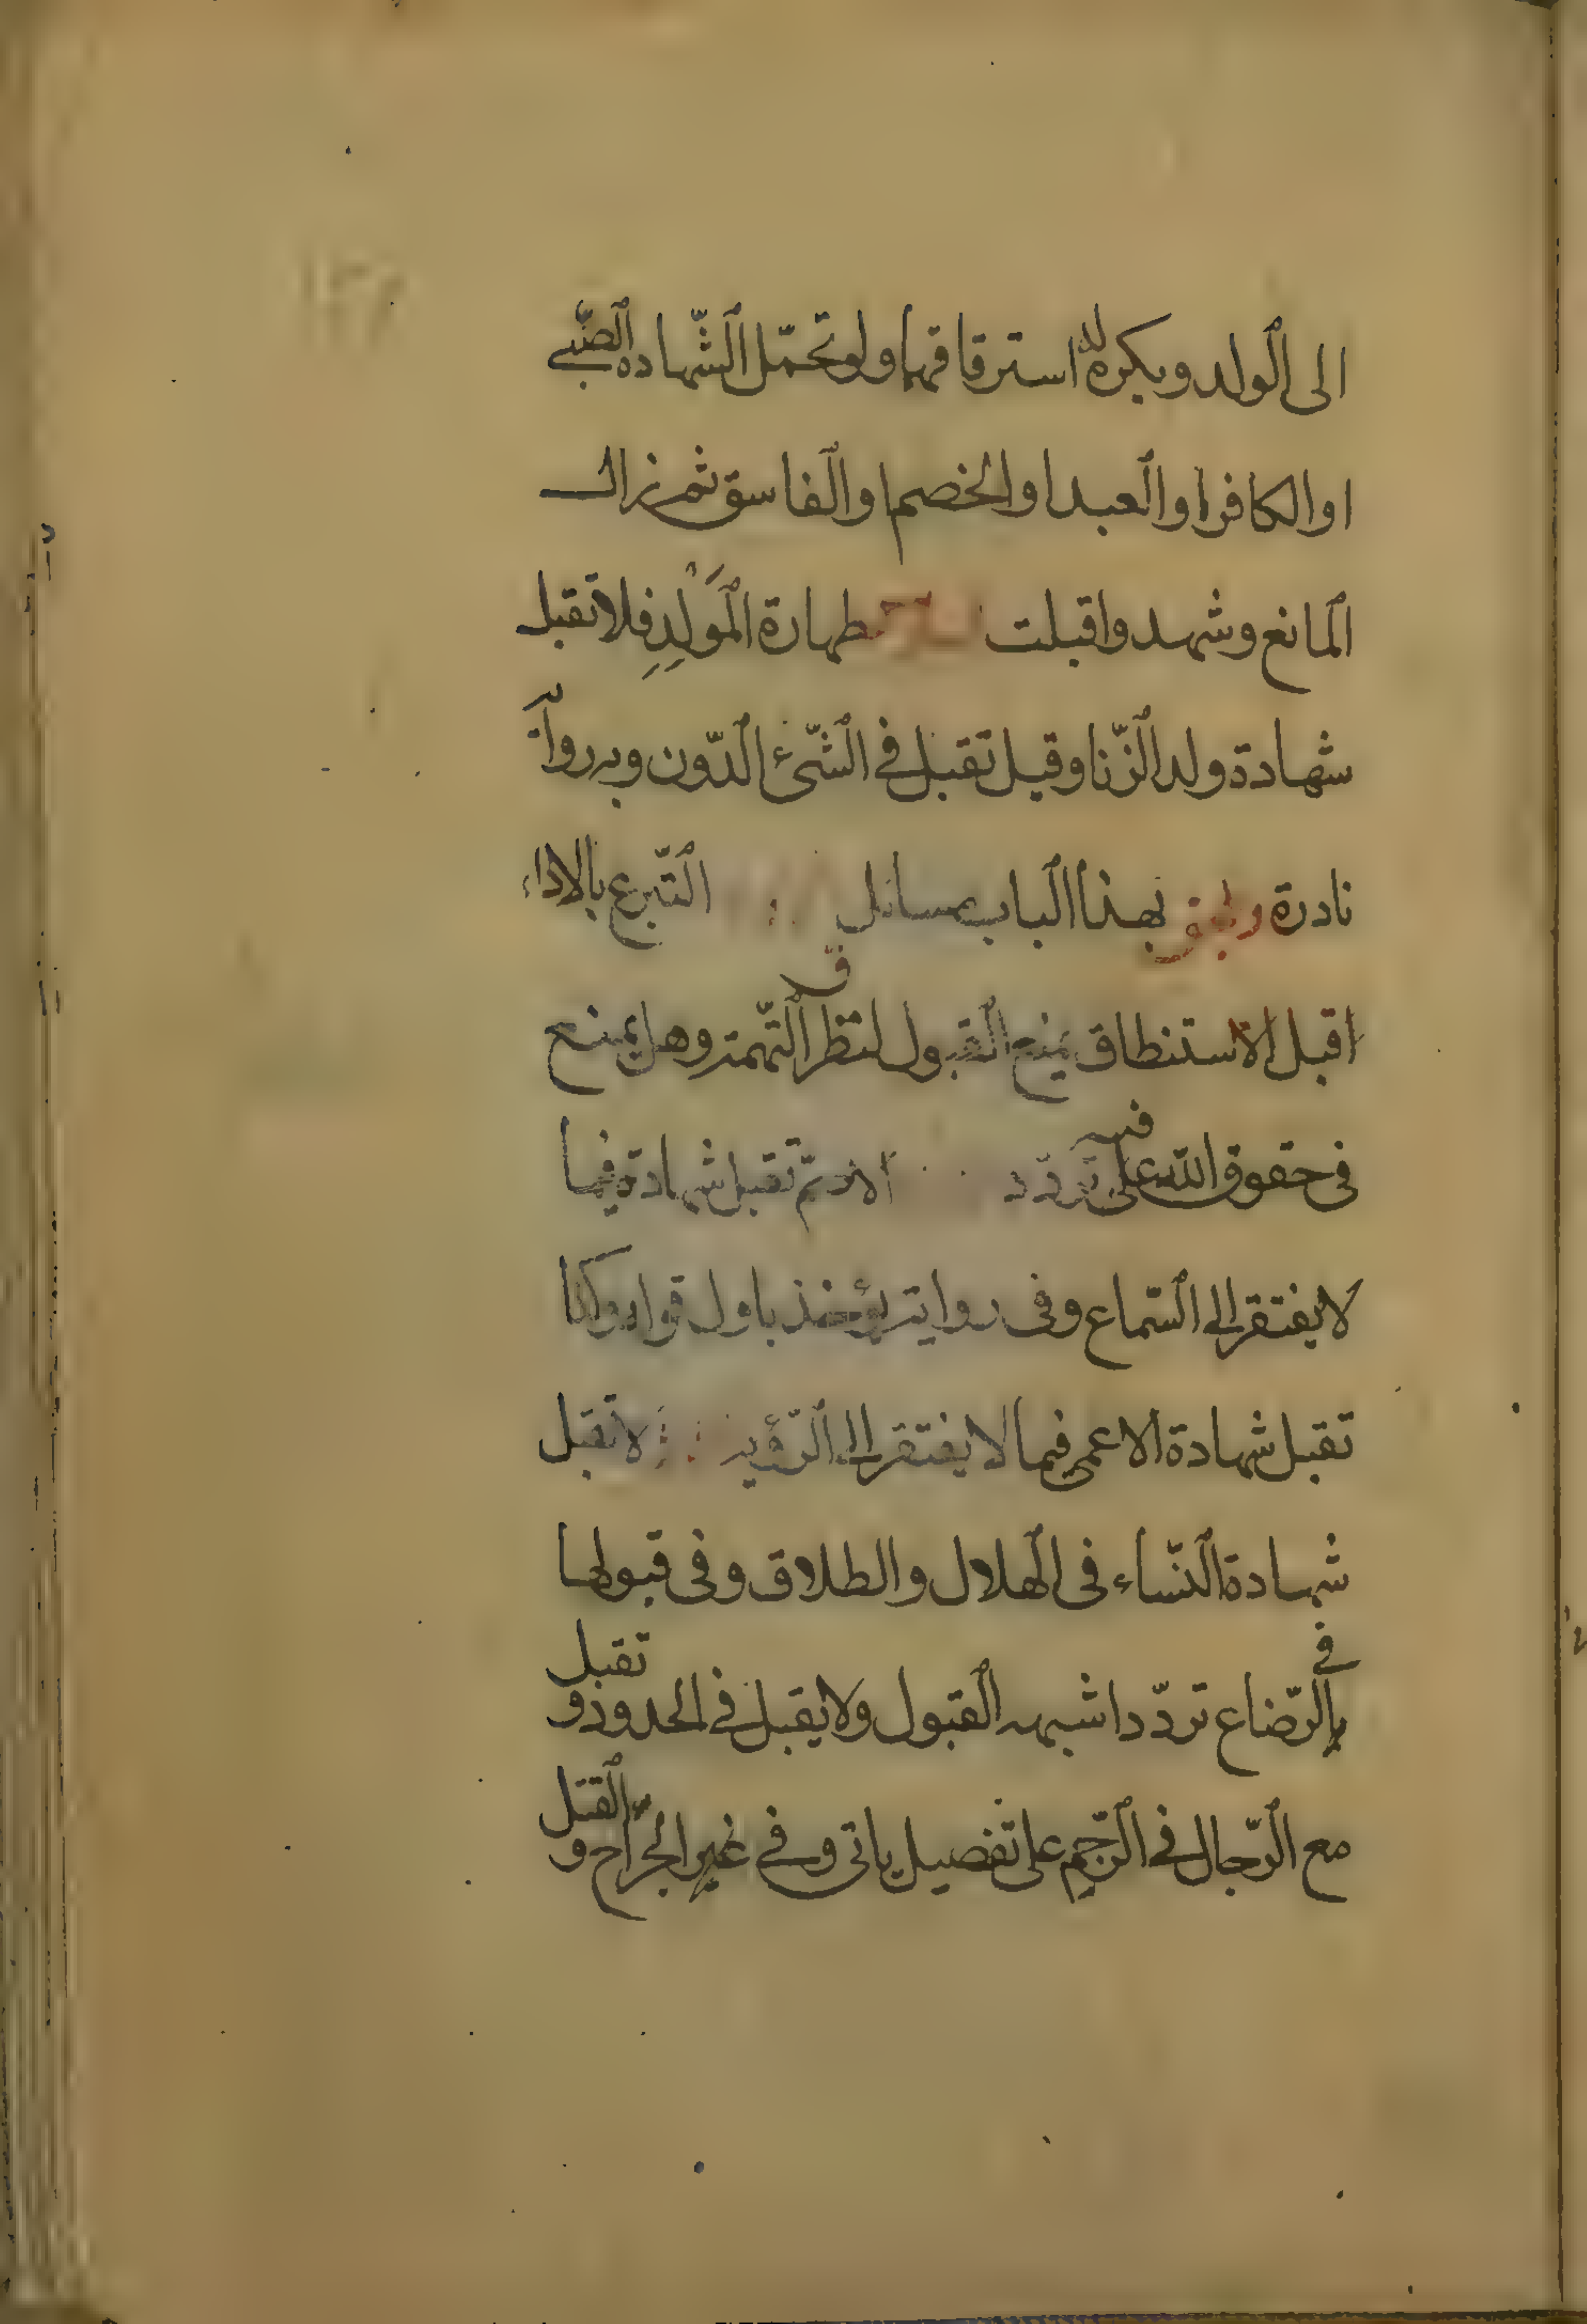 الى الولد ويكره له استرقاقهما ولو تحمّل الشّهادة الصّبي
او الكافر او العبد او الخصم او الفاسق ثم زال
المانع وشهدوا قبلت طهارة المَولِدِ فلا تقبل
شهادة ولد الزّنا وقيل تقبل في الشّئ الدّون وبه رواية
نادرة ويلحق بهذا الباب مسائل التّبرع بالاداء
قبل الاستنطاق يمنع القبول لتطرق التّهمة وهل يمنع
فى حقوق الله فيه على تردّد الاصم تقبل شهادته فيما
لا يفتقر الى السّماع وفى رواية يؤخذ باول قوله وكذا
تقبل شهادة الاعمى فيما لا يفتقر الى الرّؤية لا تقبل
شهادة النّساء فى الهلال والطلاق وفى قبولها
في الرّضاع تردّد اشبهه القبول ولا يقبل في الحدود و تقبل
مع الرّجال في الرّجم على تفصيل ياتى وفي غير الجرّاح و القتل